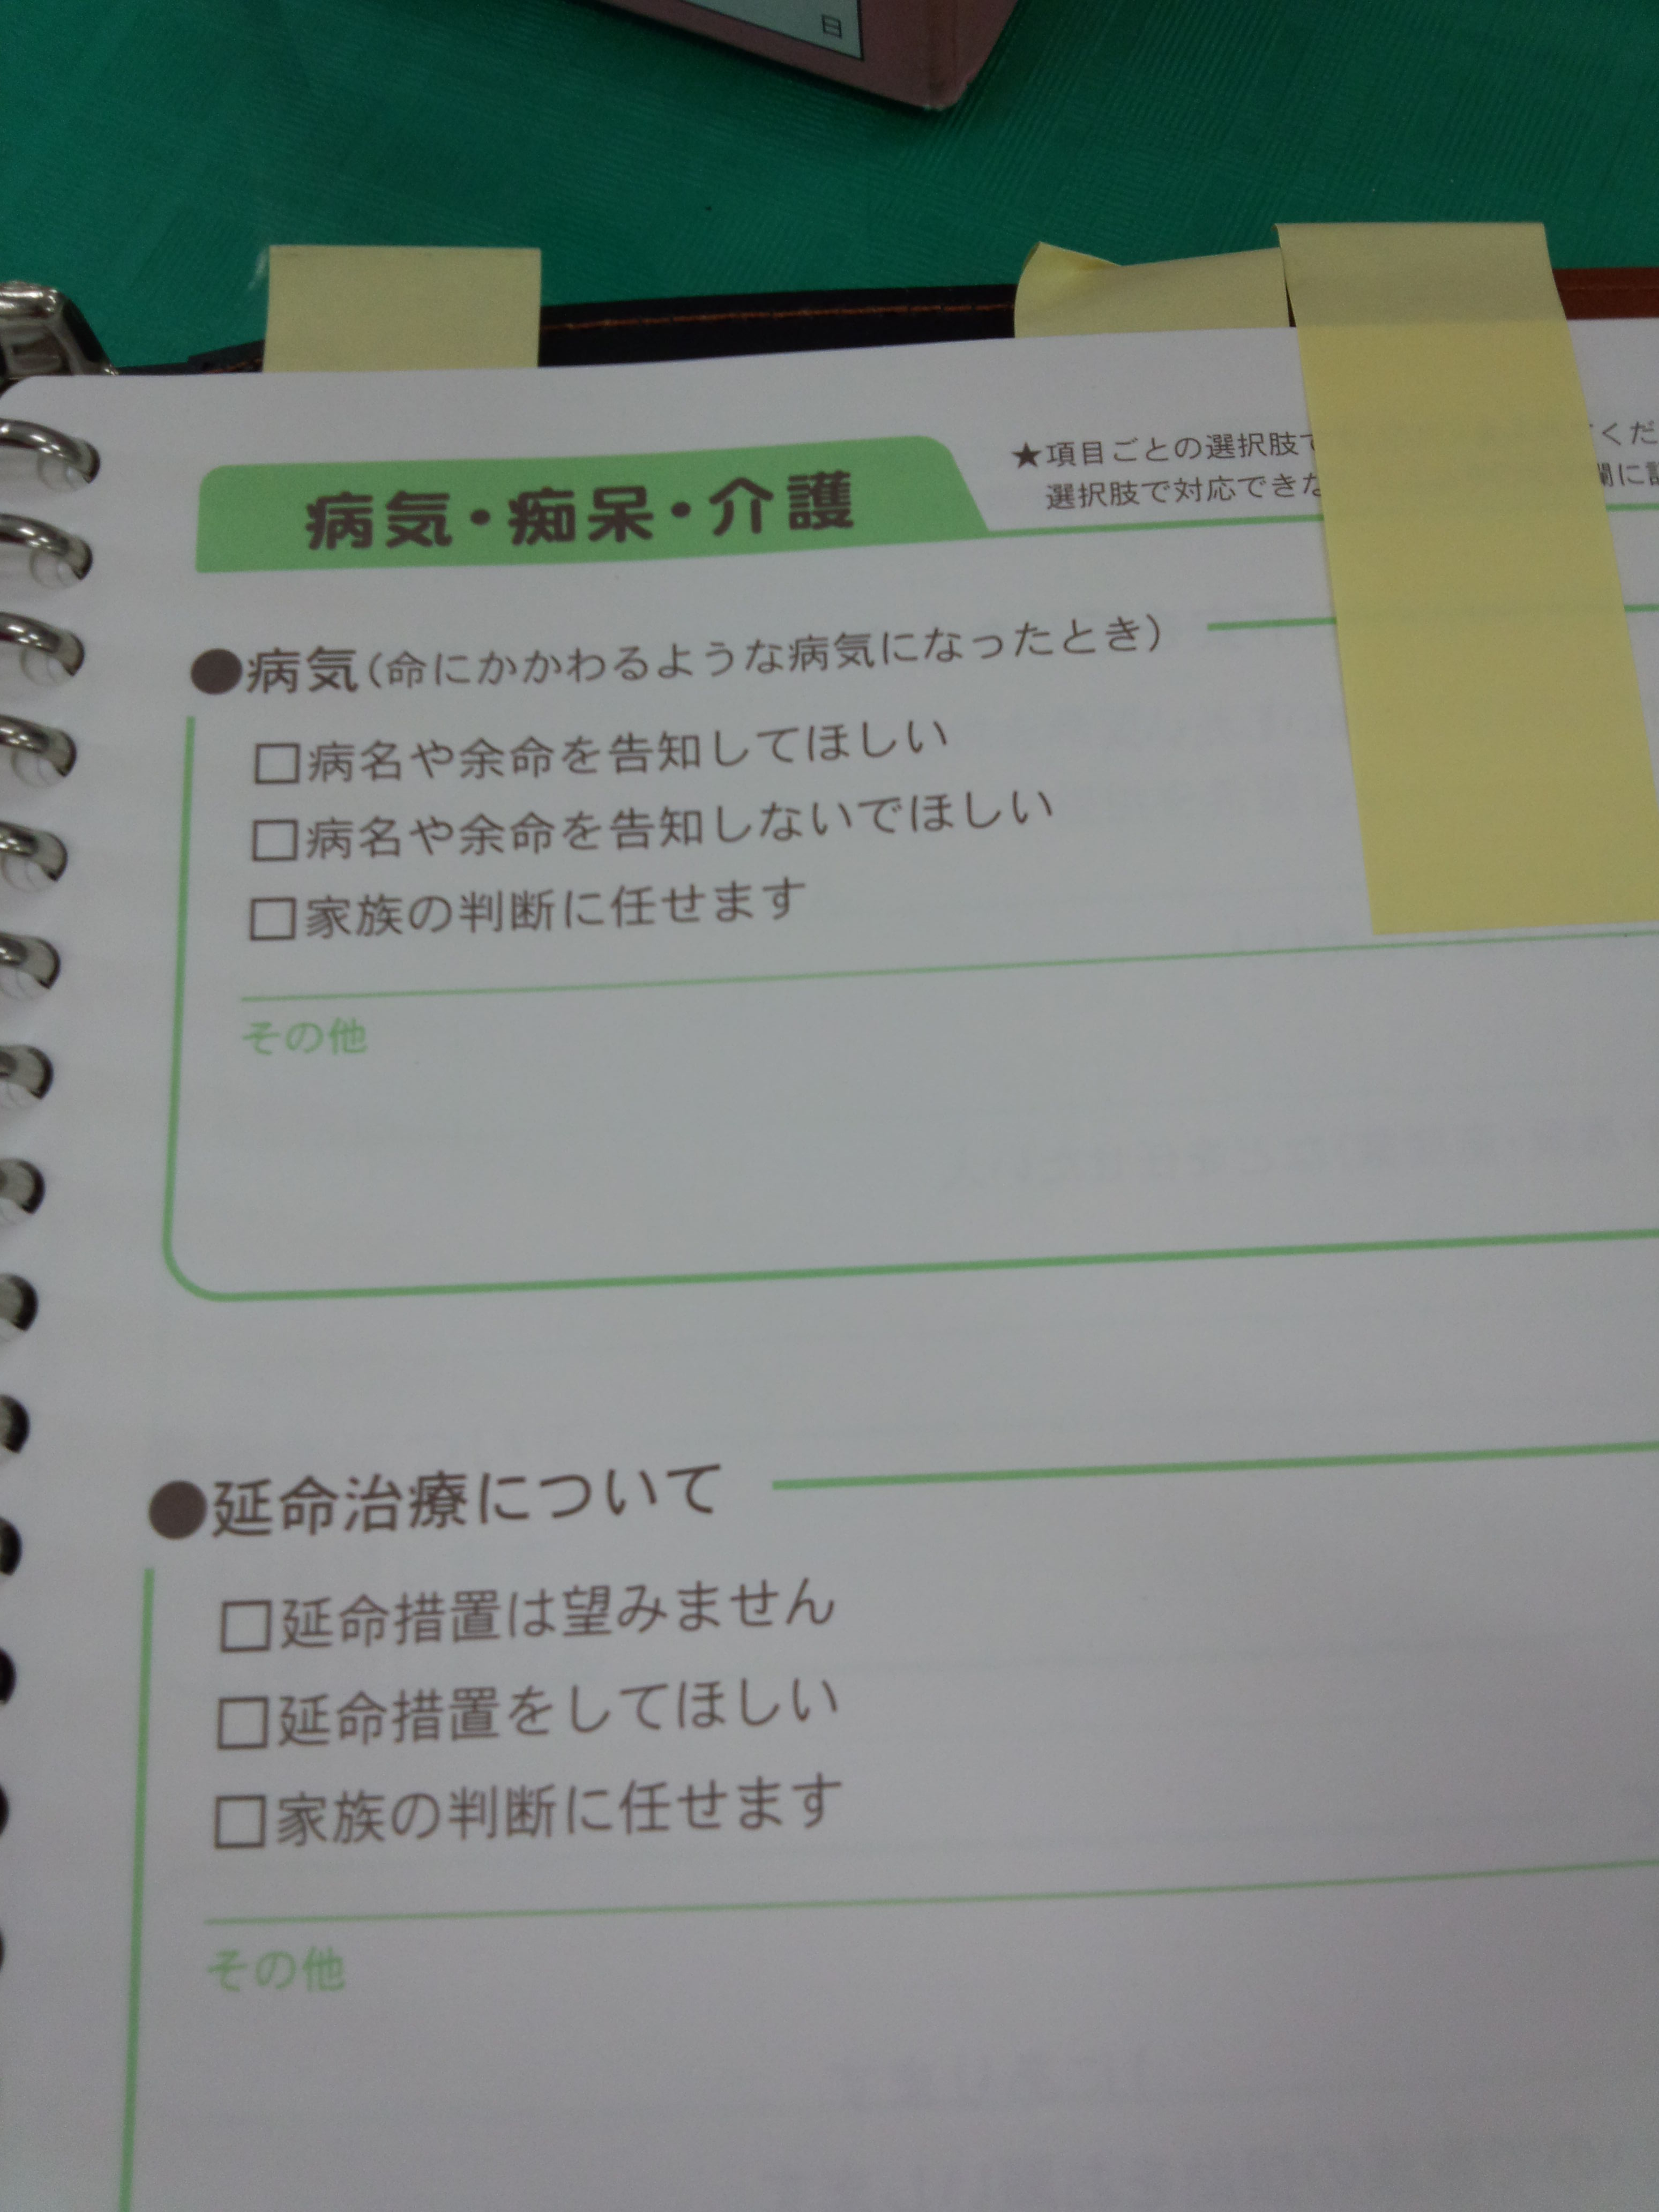 日
病気・痴呆・介護
★項目ごとの選択肢で
くだ
選択肢で対応できな
欄に記
●病気(命にかかわるような病気になったとき)
□病名や余命を告知してほしい
□病名や余命を告知しないでほしい
□家族の判断に任せます
その他
●延命治療について
□延命措置は望みません
□延命措置をしてほしい
□家族の判断に任せます
その他